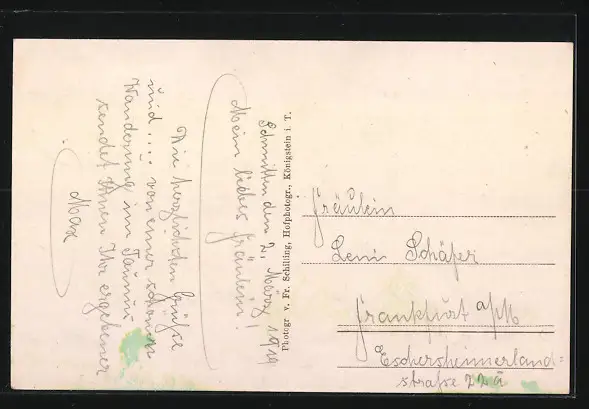 Schmitten den 2. März 1919
Mein liebes Fräulein!
Die herzlichsten Grüße
und .... von einer schönen
Wanderung im Taunus
sendet Ihnen Ihr ergebener
Max
Photogr v. Fr. Schilling, Hofphotogr., Königstein i. T.
Fräulein
Leni Schäfer
Frankfurt a/M
Eschersheimerland=
straße 22a